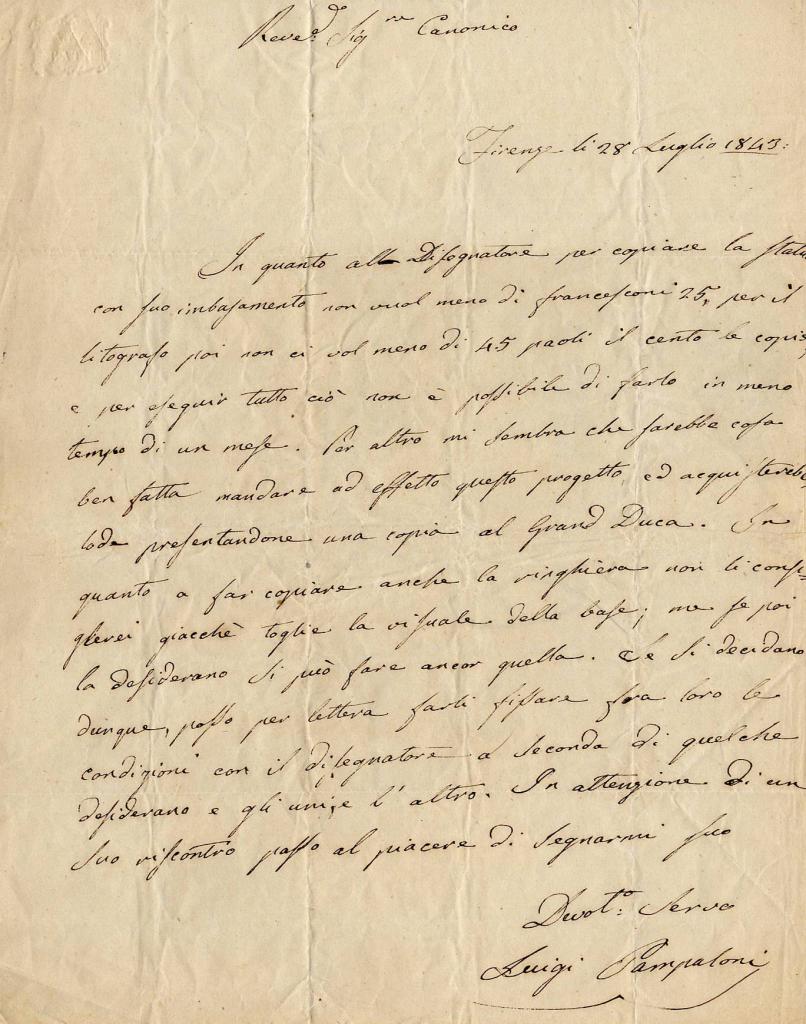 Reve.d Sig.re Canonico
Firenze li 28 Luglio 1843:
In quanto all Disegnatore per copiare la statu
con suo imbasamento non vuol meno di francesconi 25, per il
litografo poi non ci vol meno di 45 paoli il cento le copie,
e per eseguir tutto ciò non è possibile di farlo in meno
tempo di un mese. Per altro mi sembra che sarebbe cosa
ben fatta mandare ad effetto questo progetto, ed acquisterebbe
lode presentandone una copia al Grand Duca. In
quanto a far copiare anche la ringhiera non li consi-
glierei giacchè toglie la visuale della base; ma se poi
la desiderano si può fare ancor quella. Se si decidano
dunque, posso per lettera farli fissare fra loro le
condizioni con il disegnatore a seconda di quelche
desiderano e gli uni, e l'altro. In attenzione di un
suo riscontro passo al piacere di segnarmi suo
Devot.o: Servo
Luigi Pampaloni